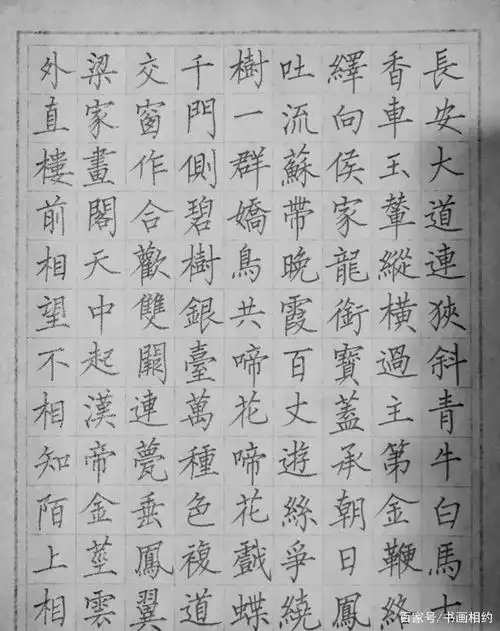 長安大道連狹斜青牛白馬七
香車玉輦縱橫過主第金鞭絡
繹向侯家龍銜寶蓋承朝日鳳
吐流蘇帶晚霞百丈遊絲爭繞
樹一群嬌鳥共啼花啼花戲蝶
千門側碧樹銀臺萬種色複道
交窗作合歡雙闕連甍垂鳳翼
梁家畫閣天中起漢帝金莖雲
外直樓前相望不相知陌上相
百家号/书画相约